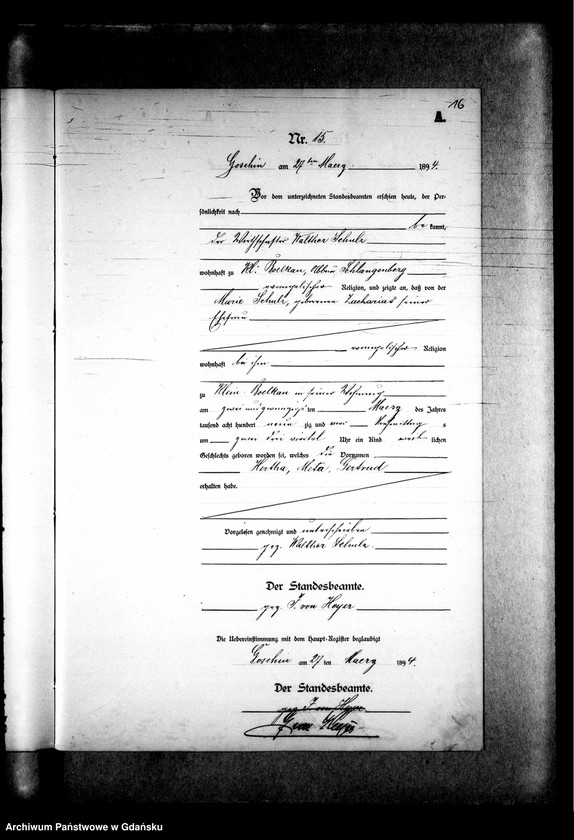 16
A.
Nr. 15.
Goschin am 27ten Maerz 1894.
Vor dem unterzeichneten Standesbeamten erschien heute, der Per-
sönlichkeit nach
be kannt,
der Wirthschafter Walther Schulz
wohnhaft zu Kl: Boelkau, Abbau Schlangenberg
evangelischer Religion, und zeigte an, daß von der
Marie Schulz, geborenen Zacharias seiner
Ehefrau
evangelischer Religion
wohnhaft bei ihm
zu Klein Boelkau in seiner Wohnung
am zwei und zwanzigsten Maerz des Jahres
tausend acht hundert neun zig und vier Vormittags
um zwei drei viertel Uhr ein Kind weiblichen
Geschlechts geboren worden sei, welches die Vornamen
Hertha, Meta, Gertrud
erhalten habe.
Vorgelesen genehmigt und unterschrieben
gez. Walther Schulz.
Der Standesbeamte.
gez. F. von Heyer
Die Uebereinstimmung mit dem Haupt-Register beglaubigt
Goschin am 27 ten Maerz 1894.
Der Standesbeamte.
gez F. von Heyer
von Heyer
Archiwum Państwowe w Gdańsku